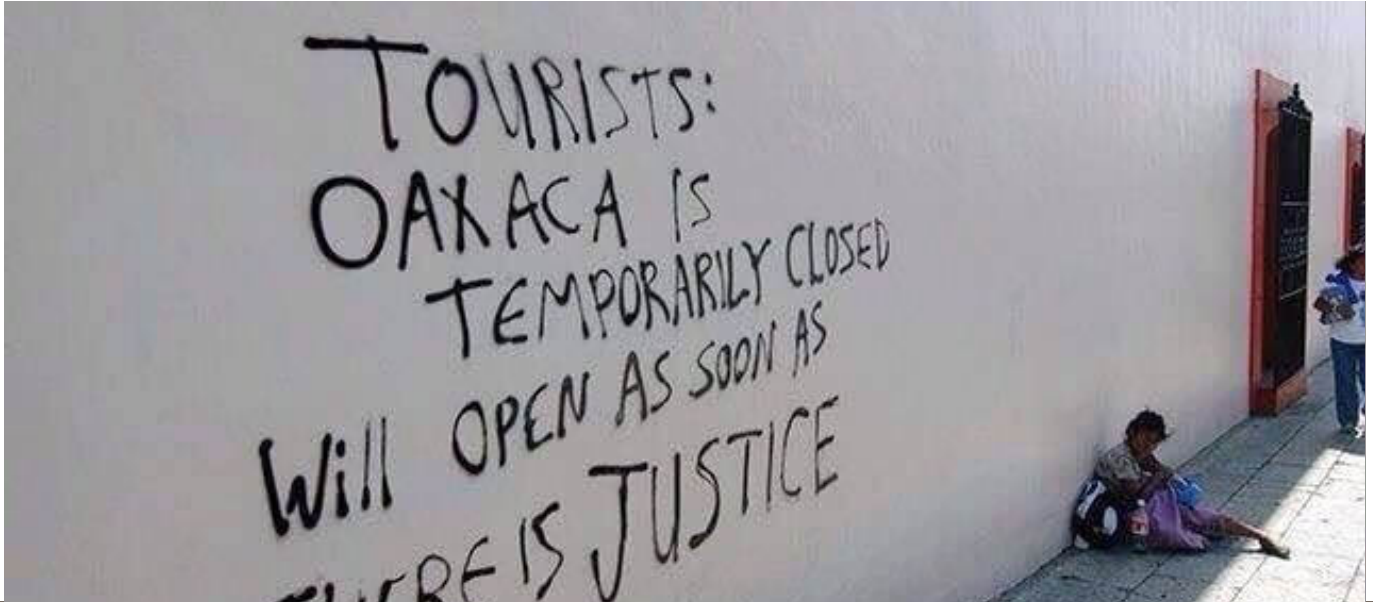 TOURISTS:
OAXACA IS
TEMPORARILY CLOSED
Will OPEN AS SOON AS
THERE IS JUSTICE